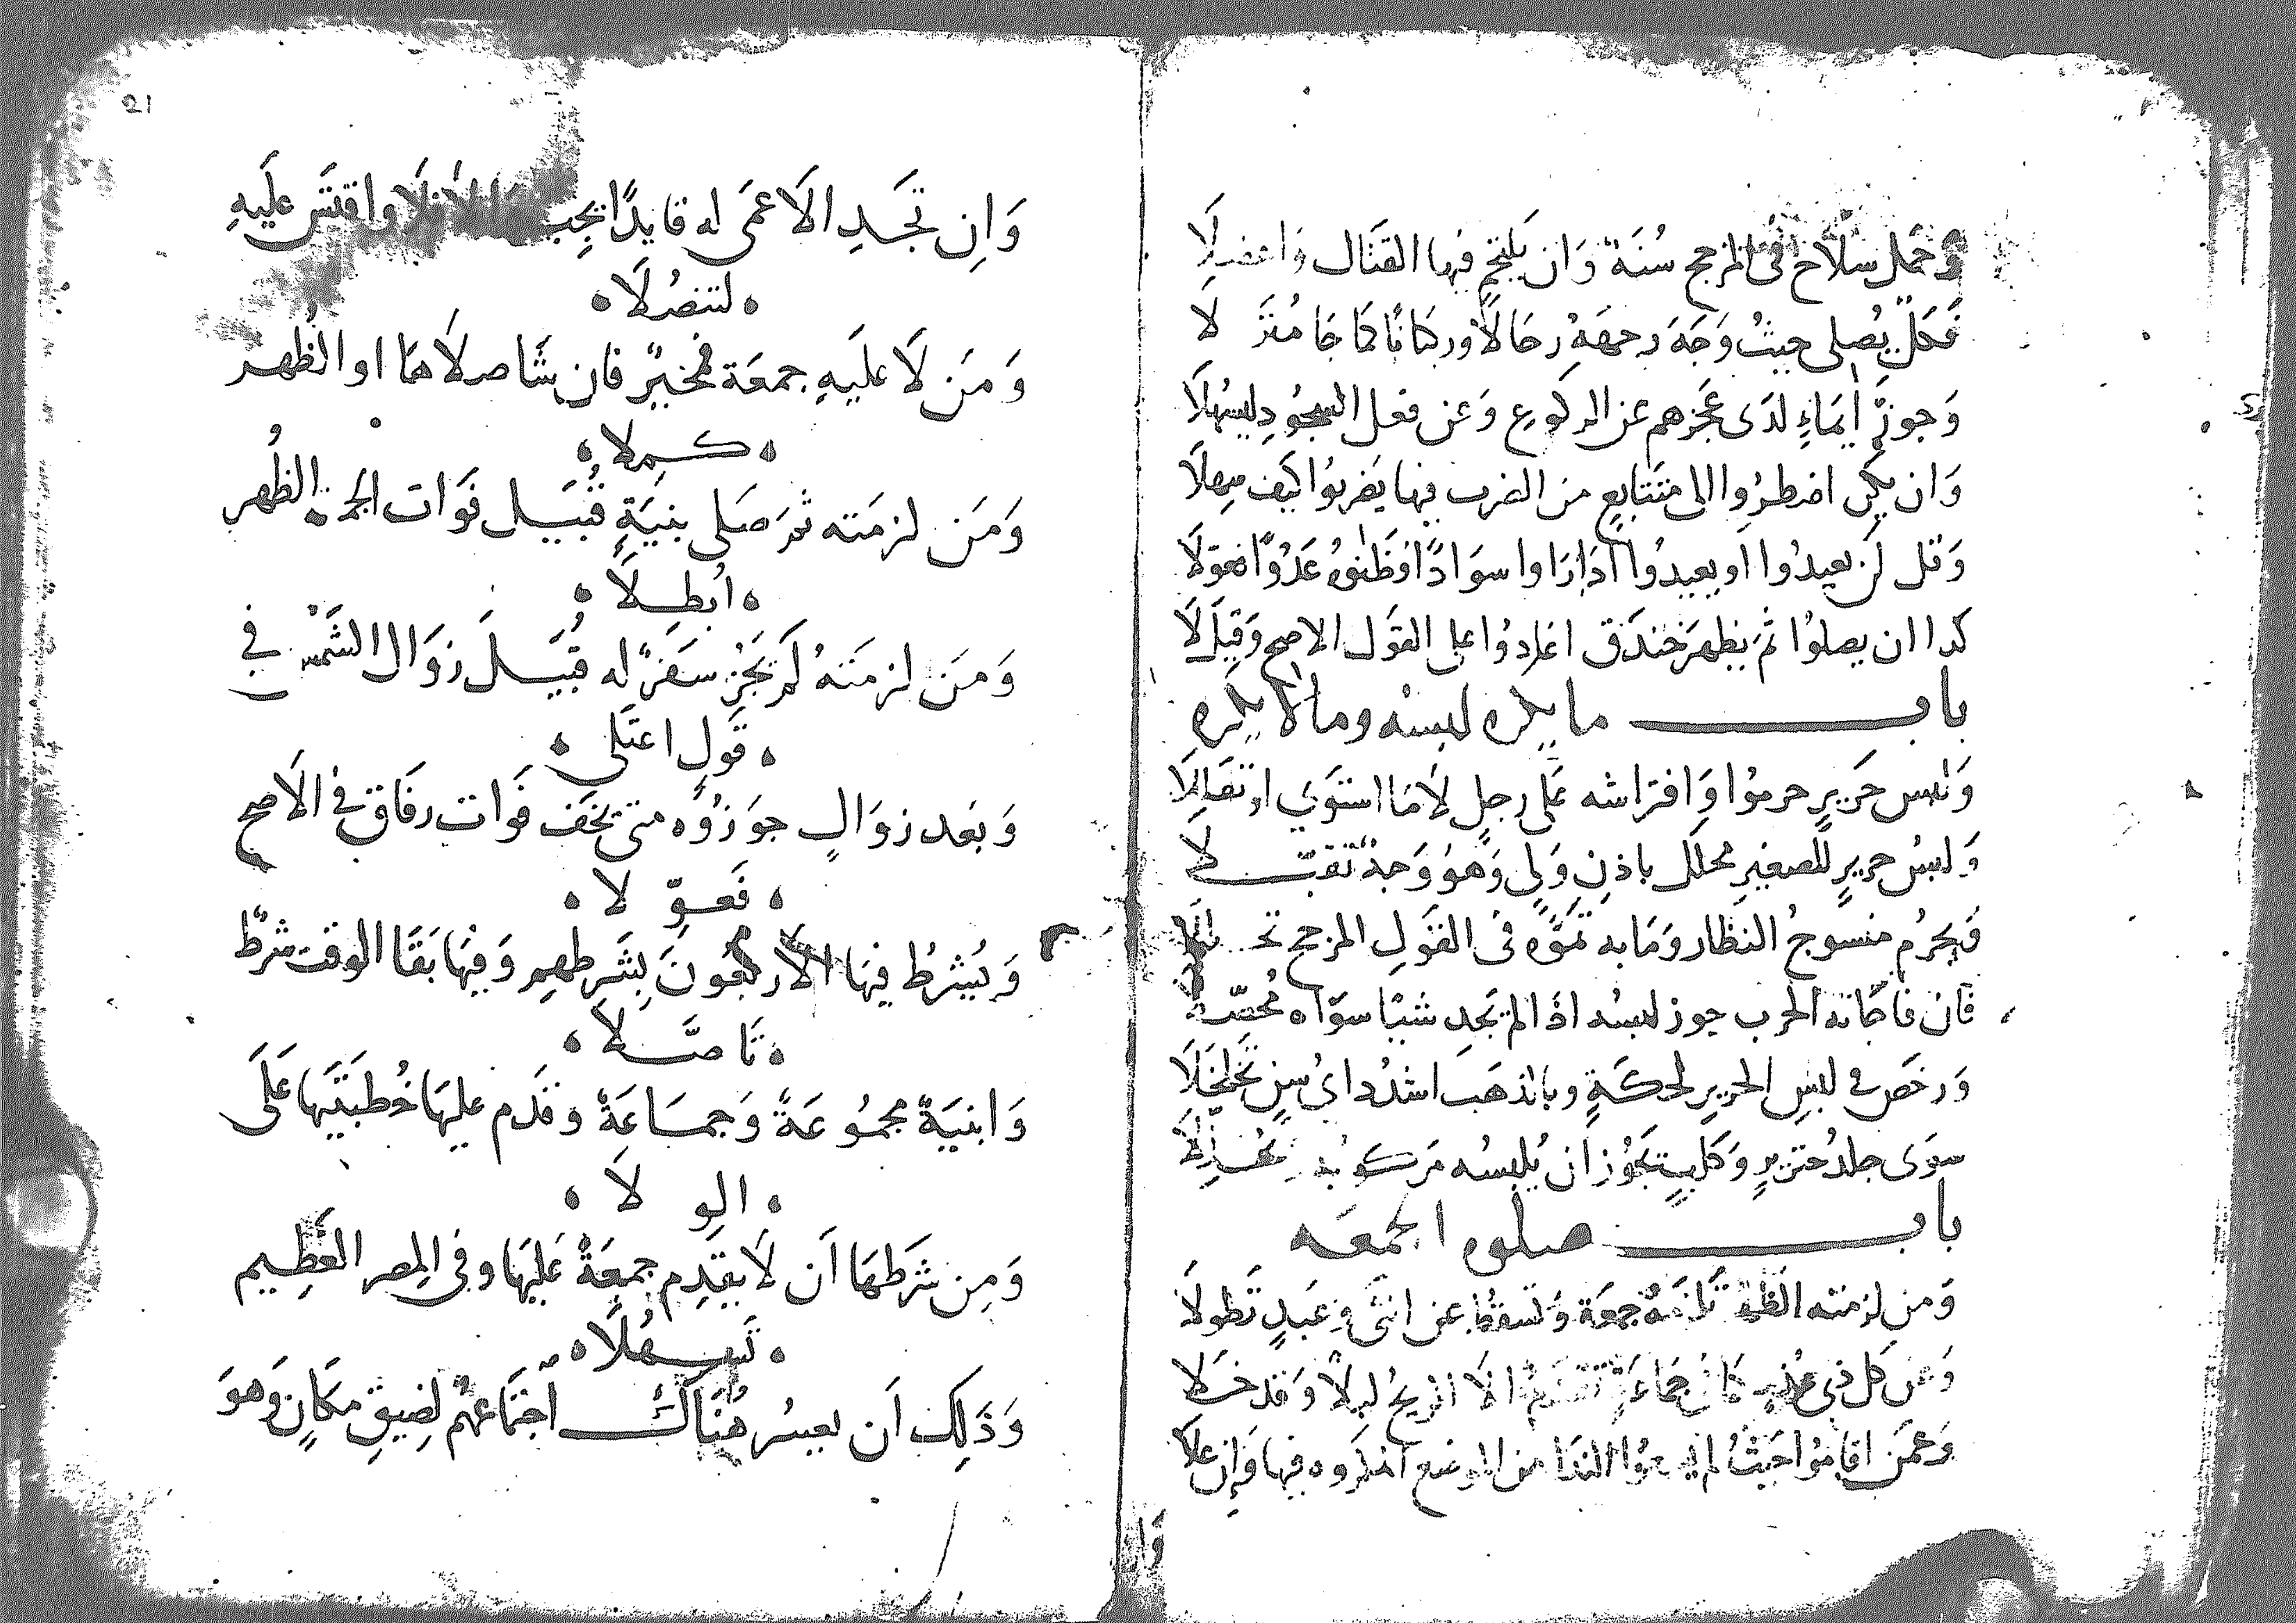 وَحَمل سلاح في المرجح سُنَة وَان يَلتحِم فيها القتَال وَاعضلَا
فَكلٌ يُصلى حيثُ وَجَهَ وجههُ رجَالًا وركبَانًا كمَا جَا مُنَزَّلا
وَجوزَ ايمَاءٍ لدَى عَجزهم عن الركوع وَعن فعل السجُودِ ليسهُلَا
وَان يكن اضطرُوا الى متَتابعٍ من الضرب فيها يَضربُوا كيَف
وَقل لن يعيدُوا او يعيدُوا اذا رَاوا سوَادًا فظَنوهُ عَدُوًا فعوّلَا
كذا ان يصلوُا ثمَ يظهرَ خندَق اعادوُا على القوَل الاصح وَقيلَ لَا
باب ما يكره لبسه وما لا يكره
وَلبس حَريرٍ حرموُا وَافترَاشه عَلى رجلٍ لَامَا استوَي او تقَللَا
وَلبسُ حريرٍ للصغيرِ محللٌ باذنِ وَليٍ وَهوُ وَجهٌ تقبّلا
وَيحرُم منسوجُ النظار وَمَا به تموّه في القوَلِ المرجح
فان فاجَاته الحرب جوز لبسُه اذا لم يَجد شيئا سوَاه مُحصّلا
وَرخصَ في لبسِ الحريرِ لحكَةٍ وبالذهَب اشدُد ايُ سنٍ تخَلخَلَا
سوَى جلدُ خنزيرٍ وَكلبٍ يجَوُز ان يُلبسُه مَركوبُه
باب صلوه الجمعَه
وَمن لزمته الظهر تلزمهُ جمعَة وَتسقُط عن انثَى وَعَبدٍ تَطولَا
وَعن كل ذي عُذرٍ جمَاعَةٍ الا الريحُ ليلًا وَقد خَلا
وَعمَن اقامُوا حَيثُ لم يسمعوُا الندَا من الموضع فيها وَإن علَا
وَان
21
وَاِن تجَدِ الَاعمَى له قايدًا يجِب وَالَا فلَا وافتَى عليَهِ
لتنصُلَا
وَمَن لَا عليَهِ جمعَة فمخيرٌ فان شَا صلَاهَا او الظُهر
كمِلا
وَمَن لزمَته ثم صَلى بنيَةٍ قُبيَل فوَات الجمعة الظُهر
ابُطِلَا
وَمَن لزمَتهُ لَم يَجُز سَفرٌ له قُبيَلَ زوَال الشَمس في
قَولٍ اعتَلى
وَبعَد زوَالٍ جوَزُوه متى يخَف فوَات رفَاق في الَاصح
فَعوّلا
وَيُشرطُ فيهَا الَاربعُونَ بشَرطهم وَفيهَا بقَا الوقت شرطٌ
تَاصَّلا
وَابنيَةٌ مجمُوعَةٌ وَجمَاعَةٌ وقدَم عليهَا خُطبَتَيها عَلَى
الوِلَا
وَمِن شرَطهَا اَن لَا يقدِم جمعَةٌ عَليهَا وفي المِصر العَظِيم
تَسهُلَا
وَذَلِك اَن يعسُر هُنَاكَ اجتمَاعهُم لِضيقِ مكَانٍ وَهوَ